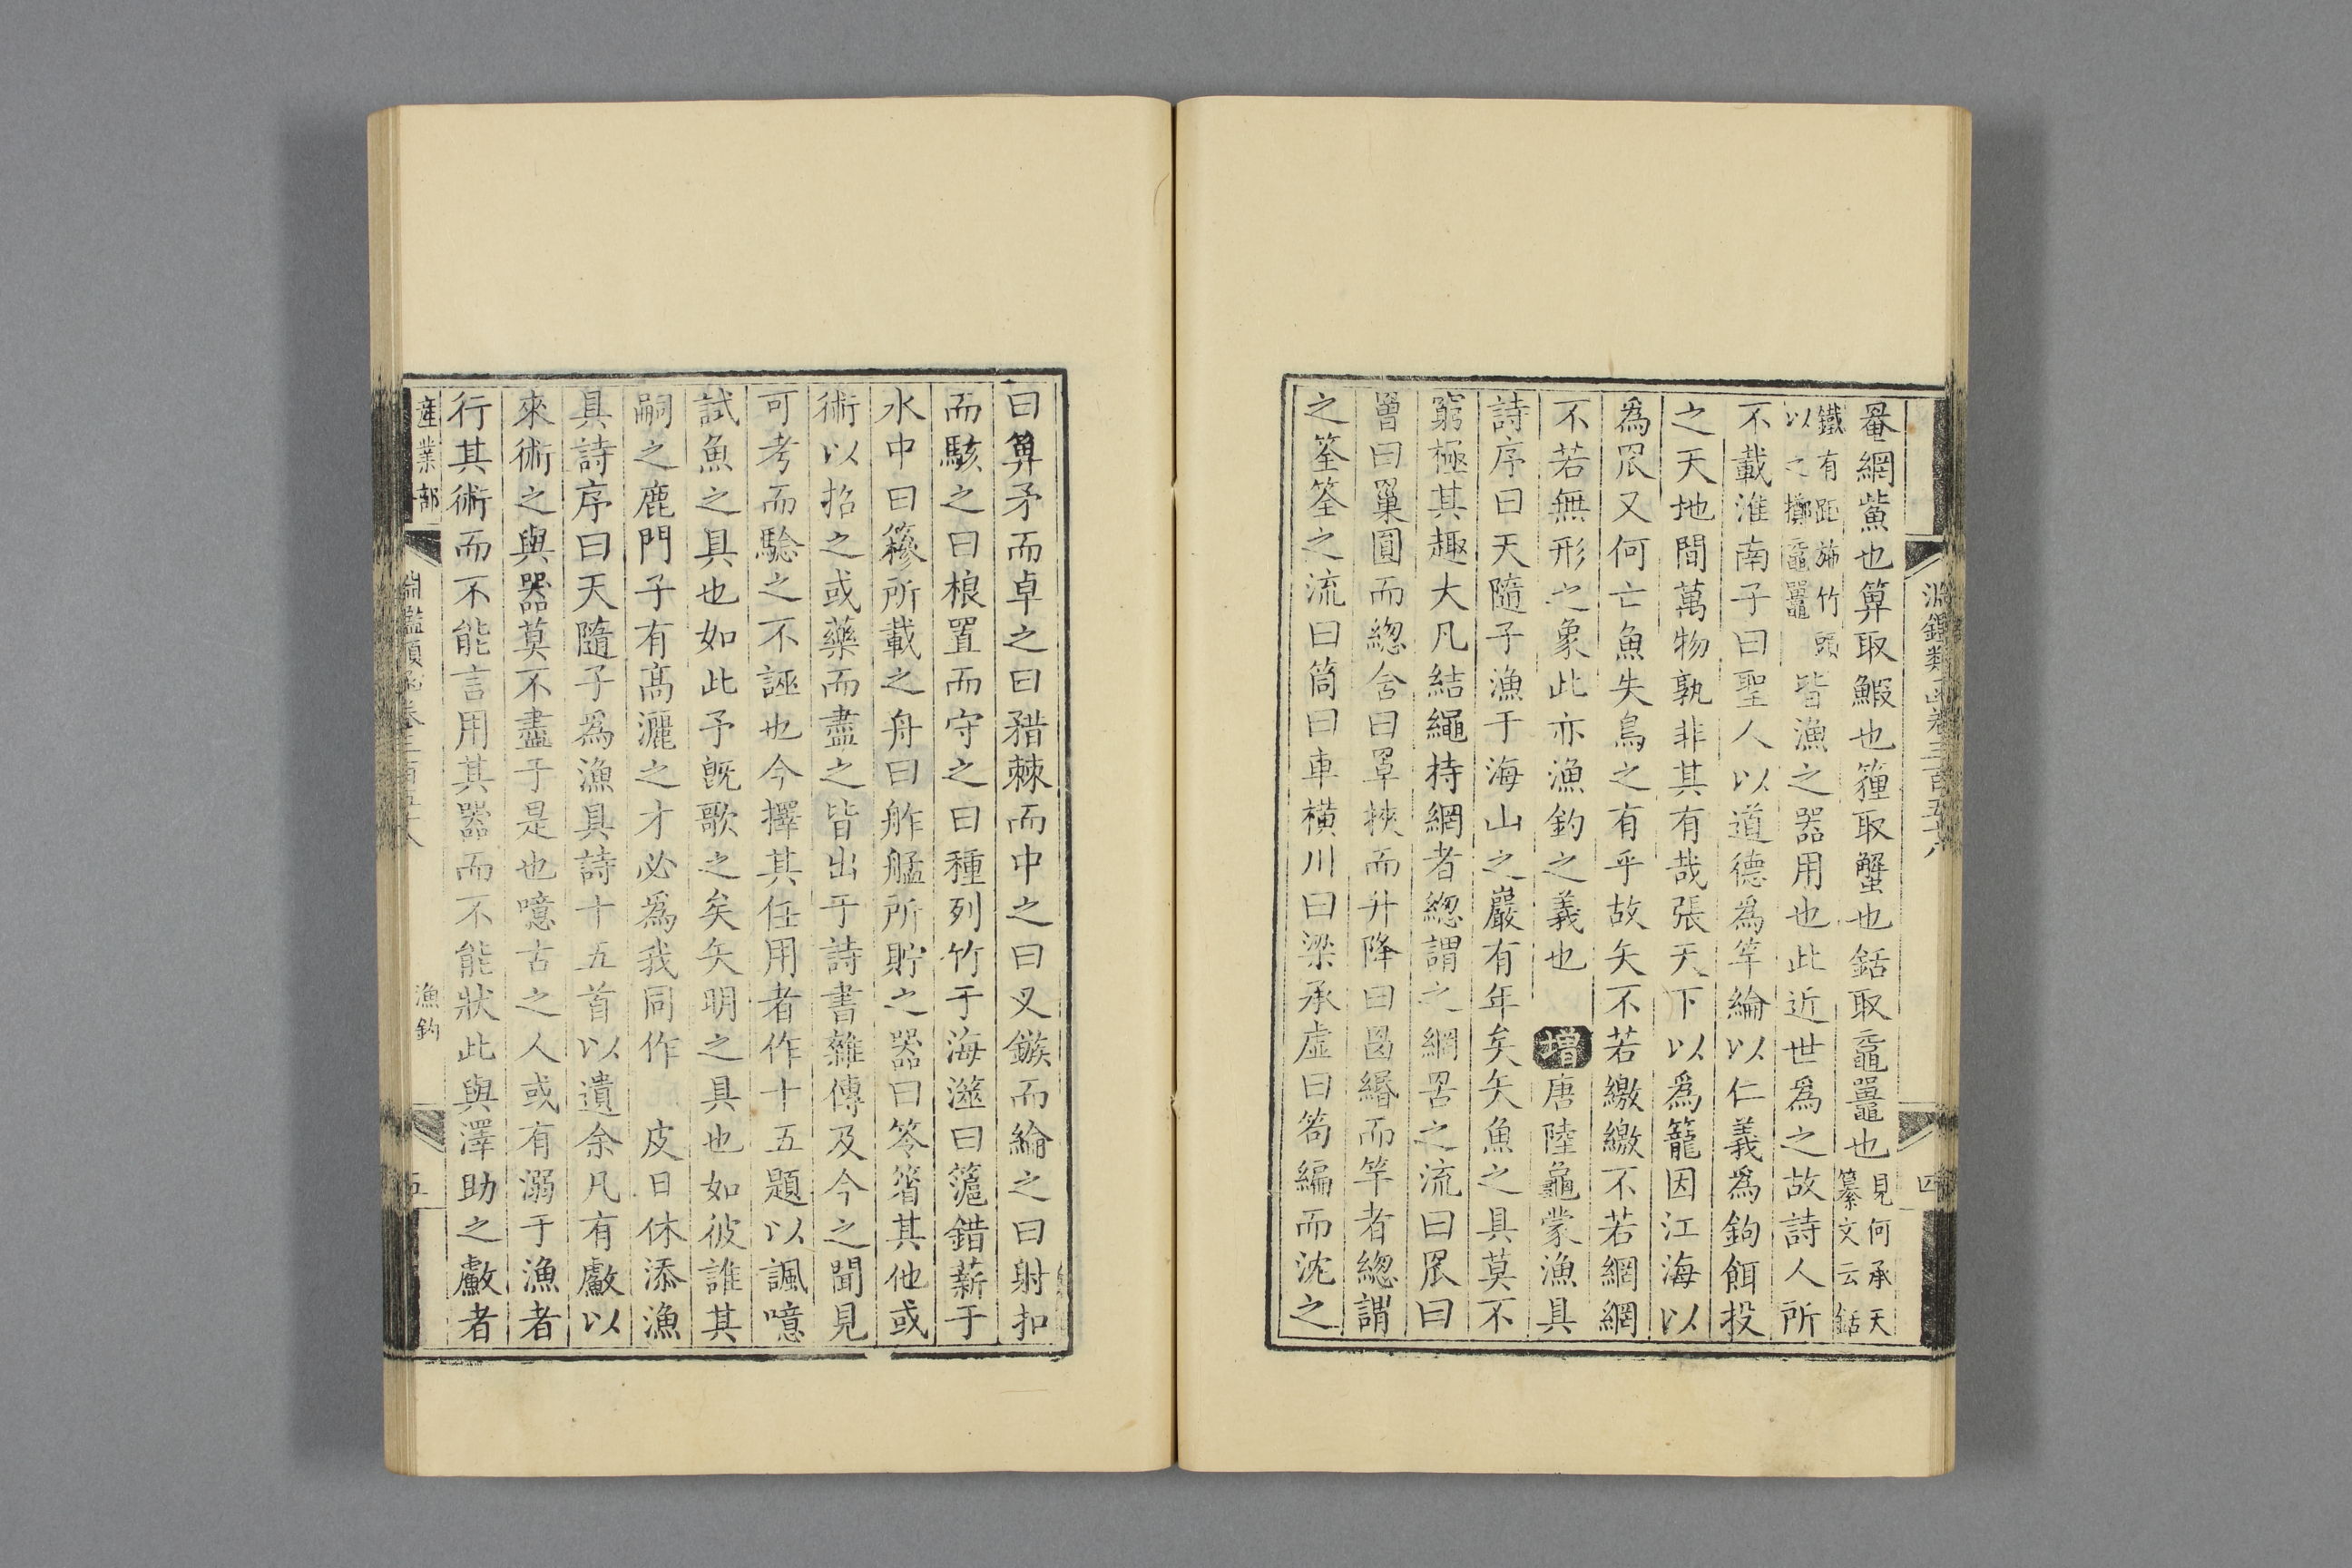 淵鑑類函卷三百五十八
四
罨網鮆也箄取鰕也籦取蟹也銛取黿鼉也見何承天纂文云銛
鐵有距施竹頭以之擲黿鼉皆漁之器用也此近世為之故詩人所
不載淮南子曰聖人以道德為竿綸以仁義為鉤餌投
之天地間萬物孰非其有哉張天下以為籠因江海以
為罛又何亡魚失鳥之有乎故矢不若繳繳不若網網
不若無形之象此亦漁釣之義也增唐陸龜蒙漁具
詩序曰天隨子漁于海山之巖有年矣矢魚之具莫不
窮極其趣大凡結繩持網者緫謂之網罟之流曰罛曰
罾曰罺圓而緃舍曰罩挾而升降曰𦊓緡而竿者緫謂
之筌筌之流曰筒曰車橫川曰梁承虛曰笱編而沈之
曰箄矛而卓之曰矠棘而中之曰叉鏃而綸之曰射扣
而駭之曰桹置而守之曰種列竹于海澨曰籞錯薪于
水中曰篸所載之舟曰舴艋所貯之器曰笭箵其他或
術以招之或藥而盡之皆出于詩書雜傳及今之聞見
可考而驗之不誣也今擇其任用者作十五題以諷噫
試魚之具也如此予旣歌之矣矢明之具也如彼誰其
嗣之鹿門子有高灑之才必為我同作 皮日休添漁
具詩序曰天隨子為漁具詩十五首以遺余凡有𣤶以
來術之與器莫不盡于是也噫古之人或有溺于漁者
行其術而不能言用其器而不能狀此與澤助之𣤶者
產業部
淵鑑類函卷三百五十八
漁釣
五